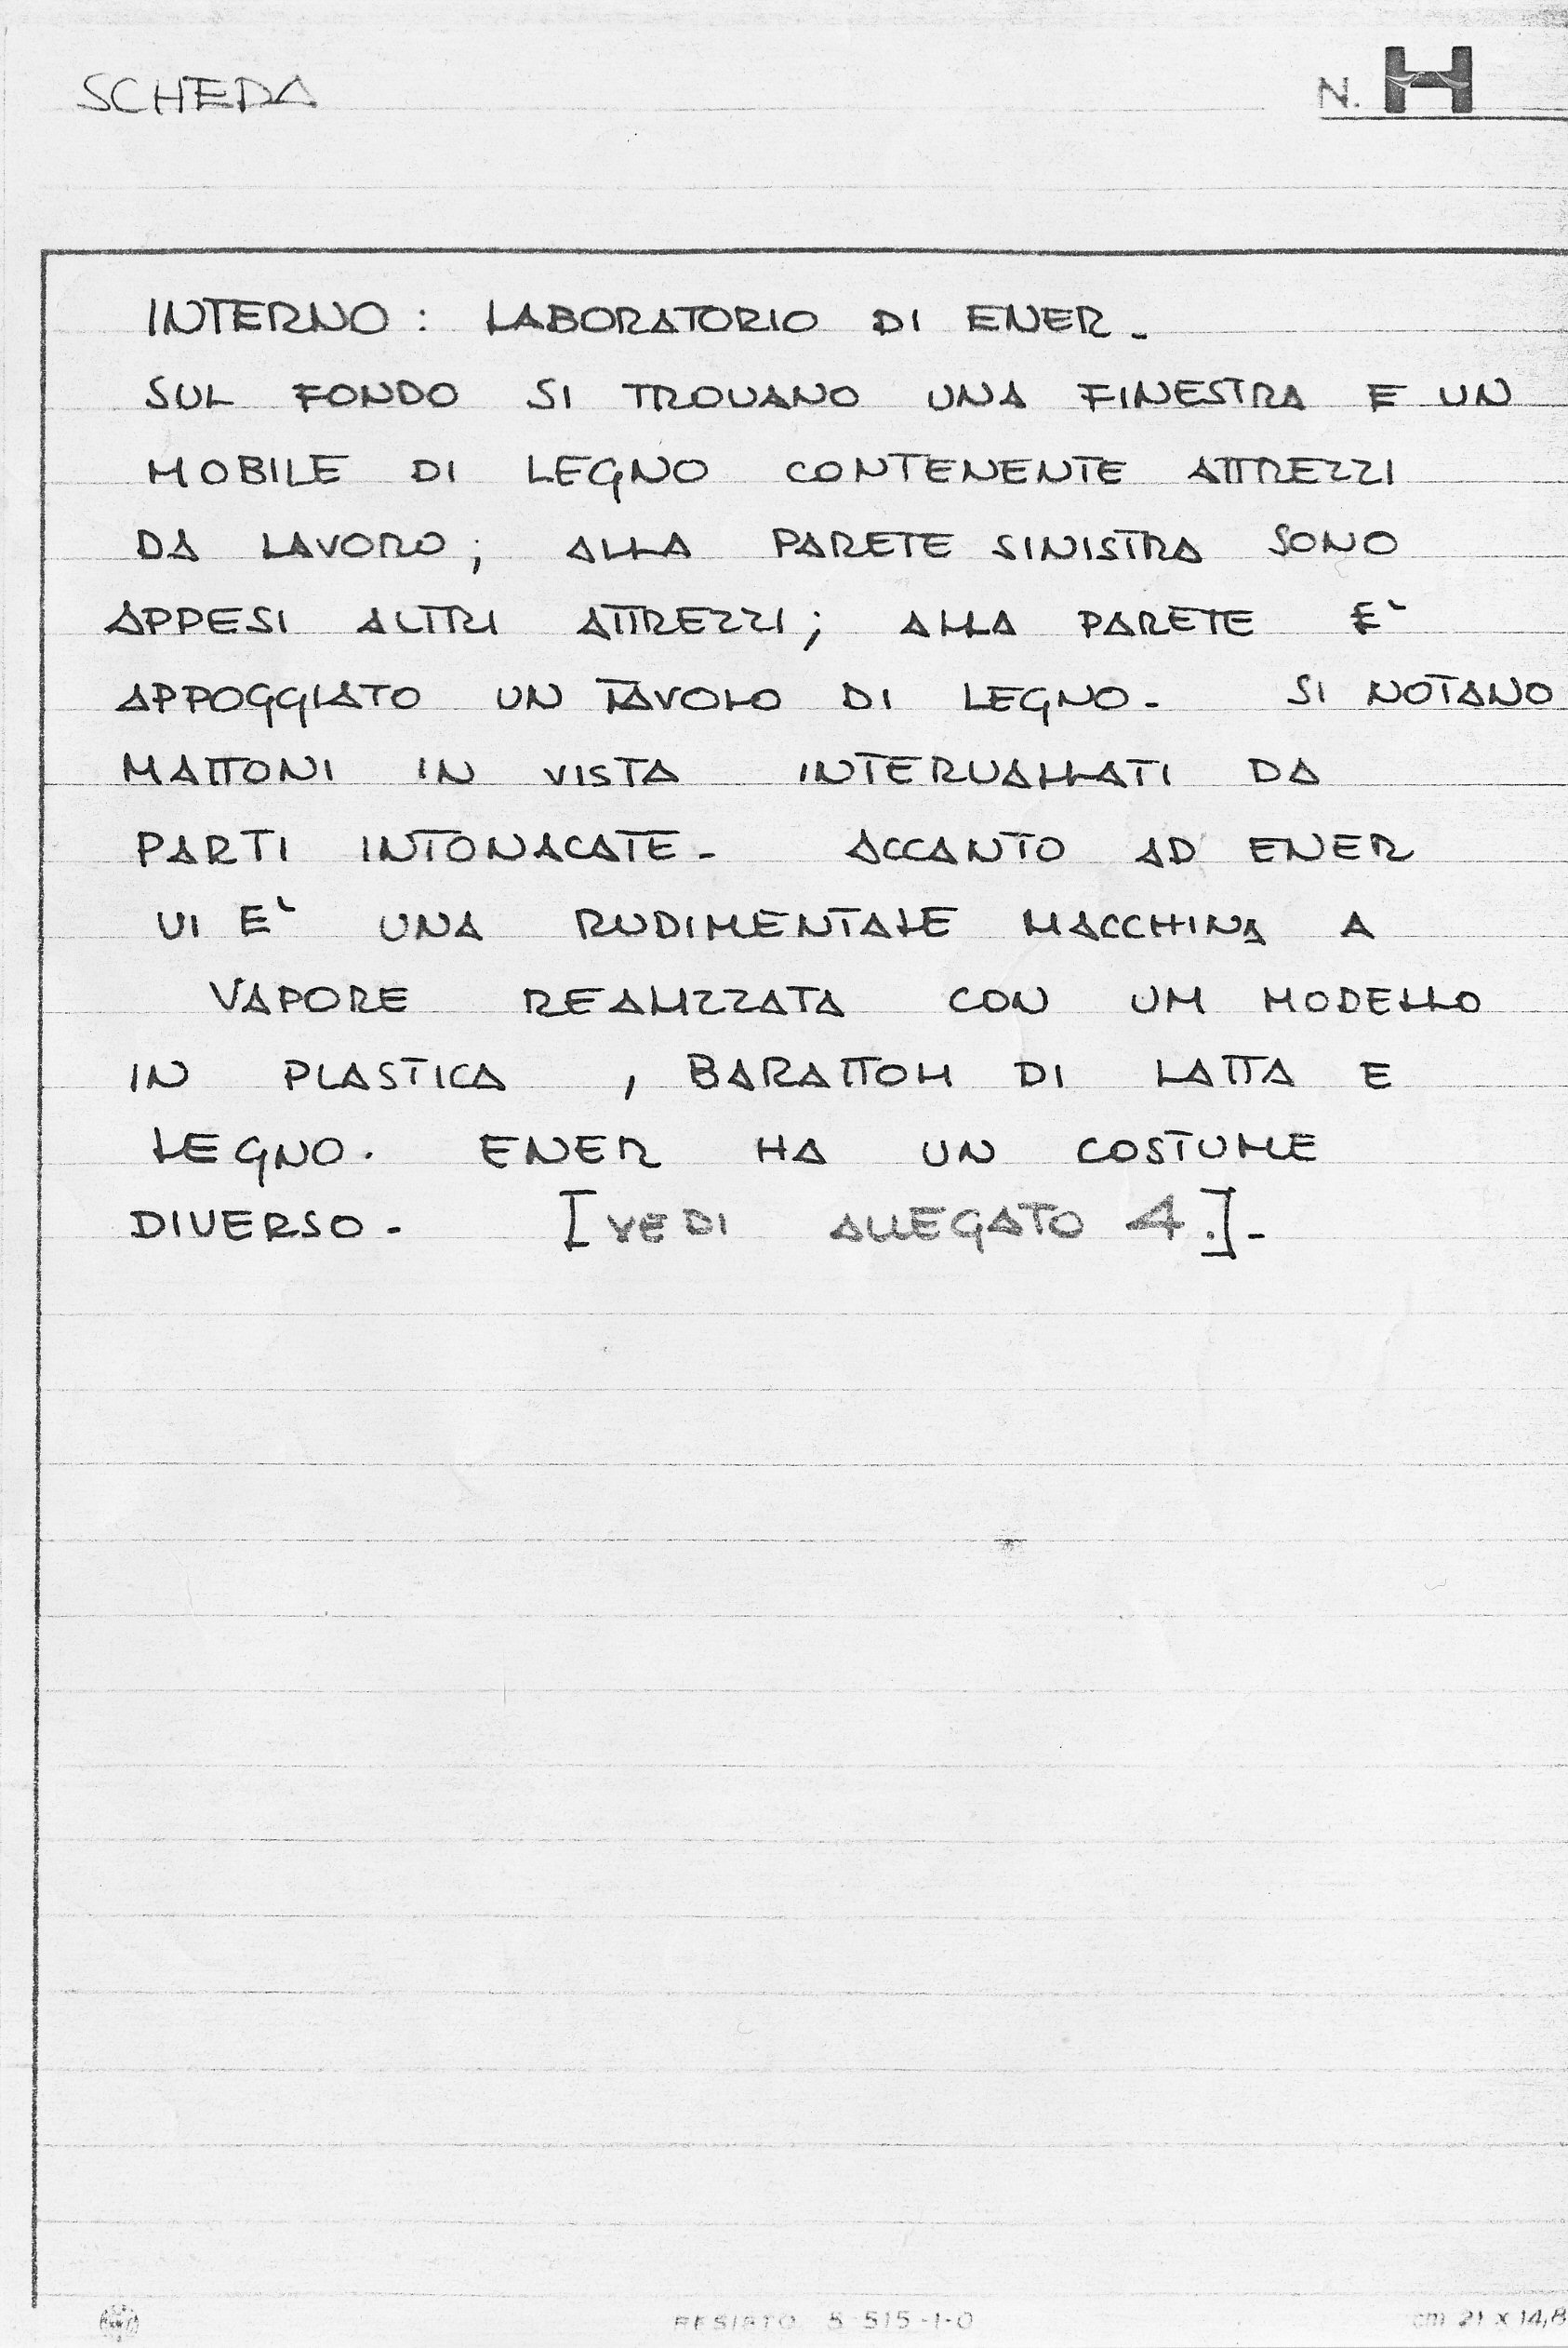 SCHEDA N. H
INTERNO: LABORATORIO DI ENER.
SUL FONDO SI TROVANO UNA FINESTRA E UN
MOBILE DI LEGNO CONTENENTE ATTREZZI
DA LAVORO; ALLA PARETE SINISTRA SONO
APPESI ALTRI ATTREZZI; ALLA PARETE E'
APPOGGIATO UN TAVOLO DI LEGNO. SI NOTANO
MATTONI IN VISTA INTERVALLATI DA
PARTI INTONACATE. ACCANTO AD ENER
VI E' UNA RUDIMENTALE MACCHINA A
VAPORE REALIZZATA CON UM MODELLO
IN PLASTICA , BARATTOLI DI LATTA E
LEGNO. ENER HA UN COSTUME
DIVERSO. [VEDI ALLEGATO 4.].
5 515-1-0 cm 21 x 14,8